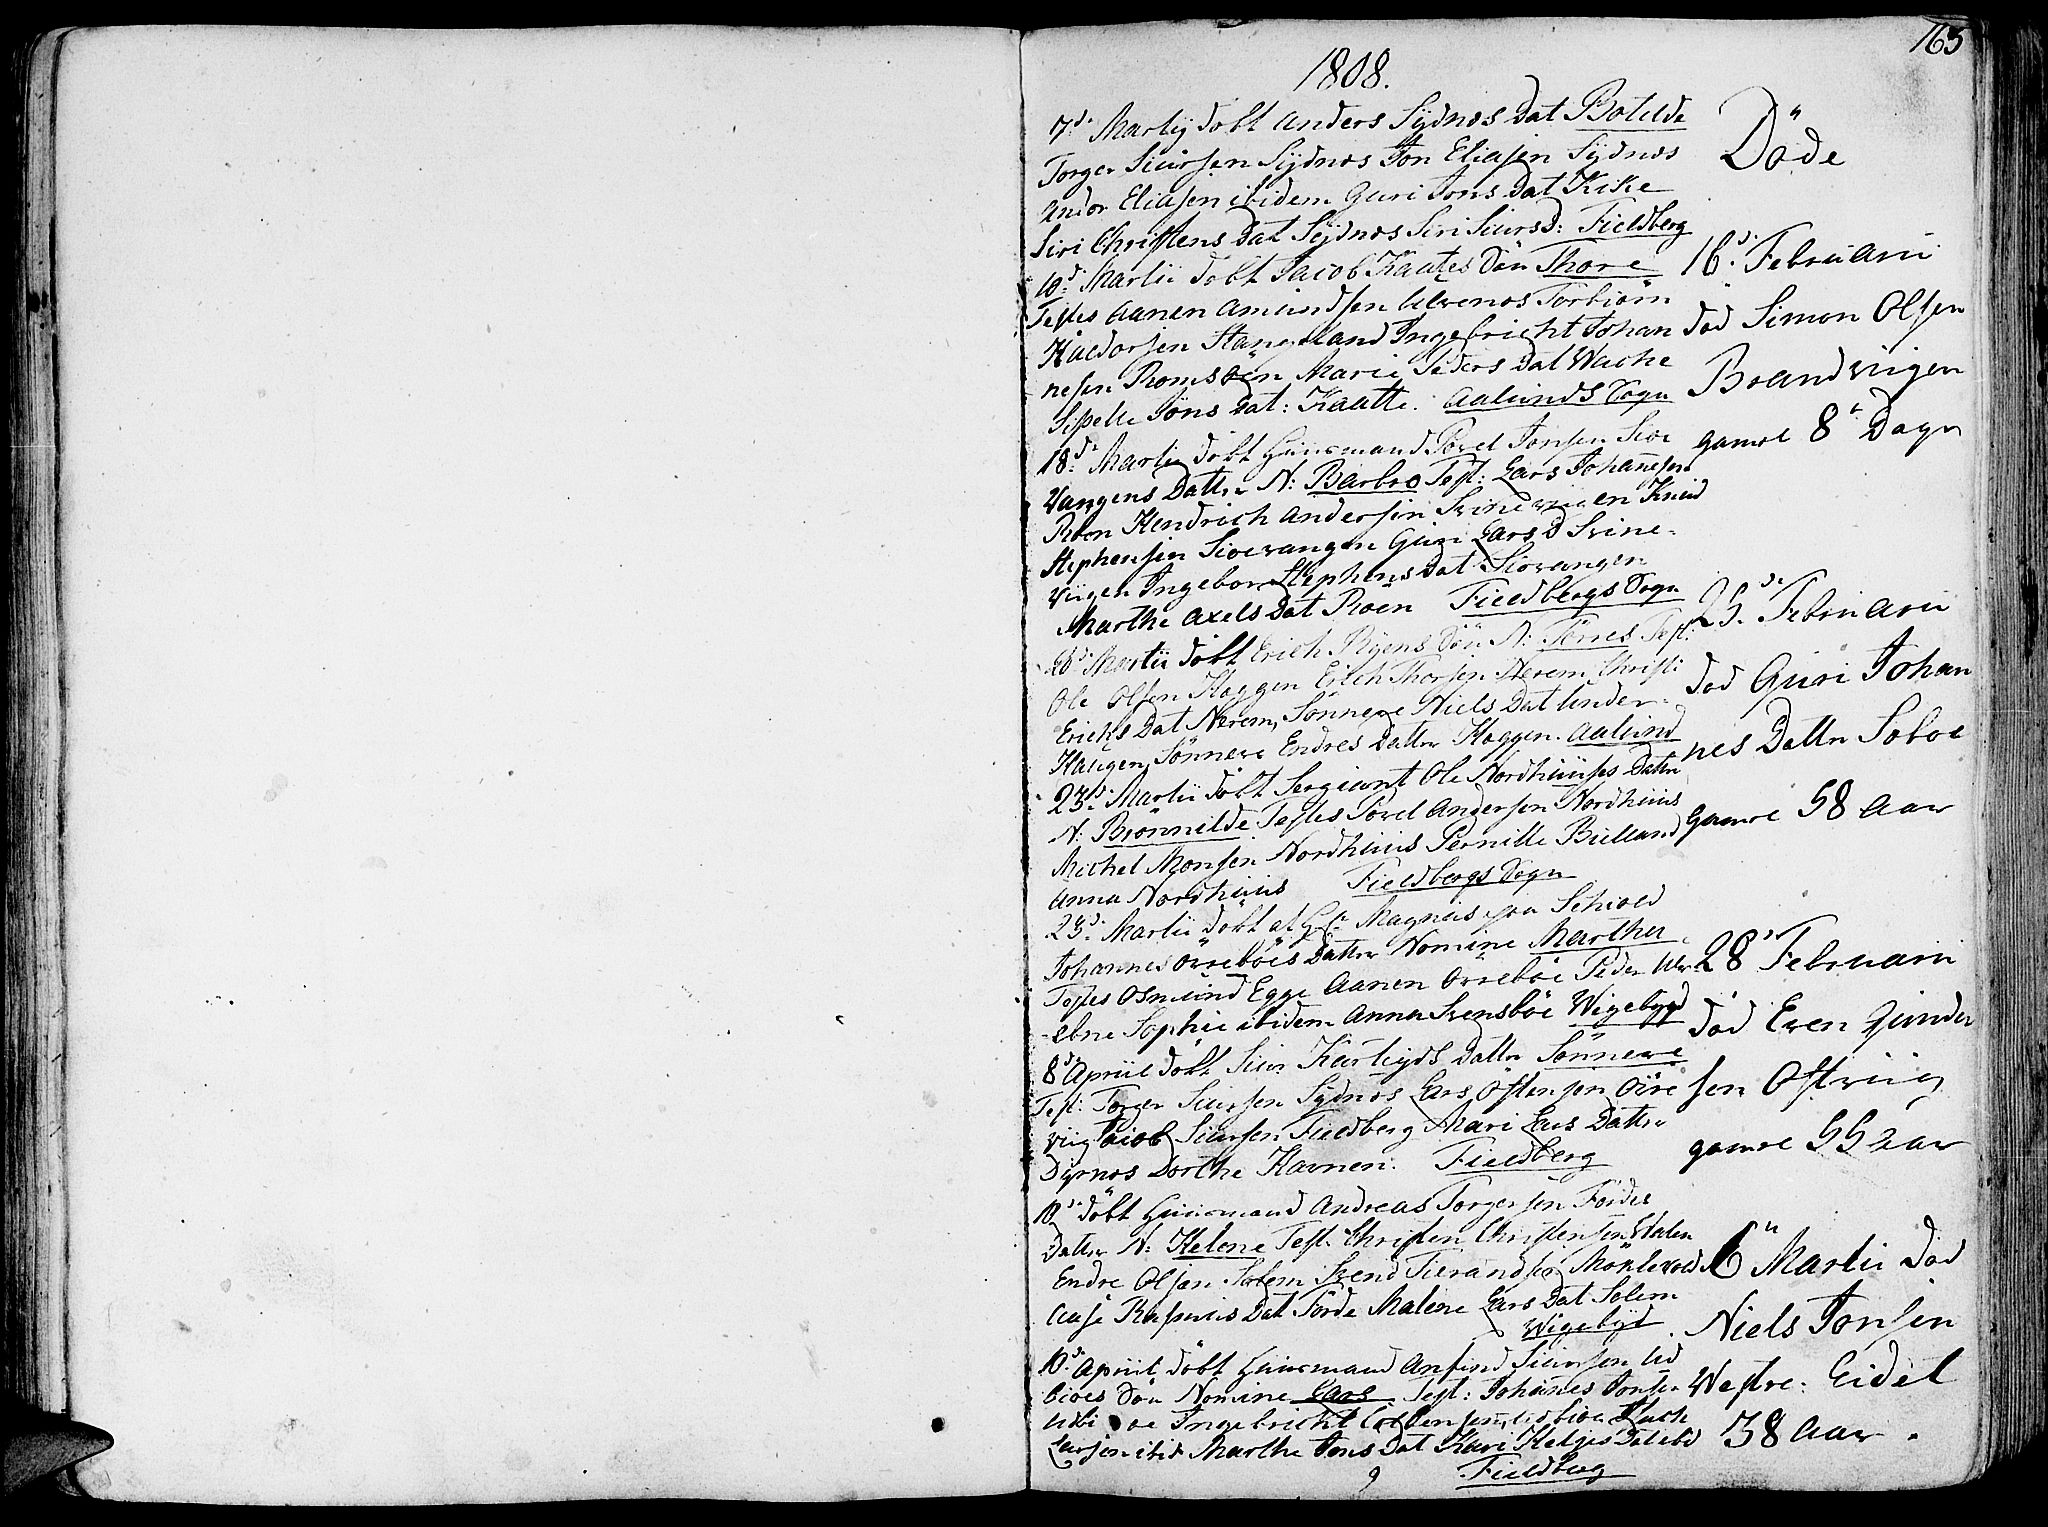 165
1808.
7d. Martij döbt Anders Sydnes Dat Botilde
Torger Siursen Sydnes Jon Eliasen Sydnes
Andor Eliasen ibidem Guri Jons Dat Kike
Siri Christens Dat Sydnes Siri Siurs D: Fieldberg
10d. Martii döbt Jacob Kaates Sön Thore
Testes Aanen Amundsen Ulvenos Torbiörn
Haldorsen Stangeland Ingebricht Johan
nesen Romsöen Marie Peders Dat Wache
Siselle Jöns Dat: Kaatte. Aalunds Sogn
18d. Martii döbt Huusmand Povel Jonsen Sioe
Vangens Datter N: Barbro Test: Lars Johanesen
Roen Hendrich Andersen Svinevigen Knud
Stephensen Sioevangen Guri Lars D Svine-
viigen Ingebor Stephens Dat Siovangen
Marthe Axels Dat Roen Fieldbergs Sogn
20d. Martii döbt Erich Ryens Sön N: Törres Test:
Ole Olsen Haggen Erich Thorsen Nerem Christi
Erichs Dat Nerem, Sönneve Niels Dat Under-
Haugen, Sönneve Endres Datter Haggen. Aalund
23d. Martii döbt Sergiant Ole Nordhuuses Datter
N: Brönnilde Testes Povel Andersen Nordhuus
Michel Monsen Nordhuus Pernille Bielland
Anna Nordhuus Fieldbergs Sogn
23d. Martii döbt af Hr. Magnus paa Schiold
Johannes Örreböes Datter Nomine Martha
Testes Osmund Egge Aanen Örreböe Peder Ulv
-ebne Sophie ibidem Anna Svensböe Wigebygd
8d. Apriil döbt Siur Hartvigs Datter Sönneve
Test: Torger Siursen Sydnes Lars Östensen Öire
viig Jacob Siursen Fieldberg Mari Lars Datter
Dyrnes Dorthe Havnen. Fieldberg
10d. döbt Huusmand Andreas Torgersen Fördes
Datter N: Helene Test: Christen Christensen Stolen
Endre Olsen Solem Svend Tierandsen Möklevold
Aase Rasmus Dat Förde Malene Lars Dat Solem
Wigebyd
10d. Apriil döbt Huusmand Anfind Siursen Ud
bioes Sön Nomine Lars Test: Johanes Jonsen
Udbi oe Ingebricht Udbioe
Larsen ibid Marthe Jons Dat Kari Helges Dat ibd
Fieldberg
Döde
16d. Februarii
död Simon Olsen
Brandviigen
gamel 8te Dage
25de Februarii
död Guri Johan
nes Datter Söboe
gamel 58 Aar
28d Februarii
död Even Gunder
sen Ostviig
gamel 55 aar
6te Martii död
Niels Jonsen
Westre: Eidet
38 Aar.